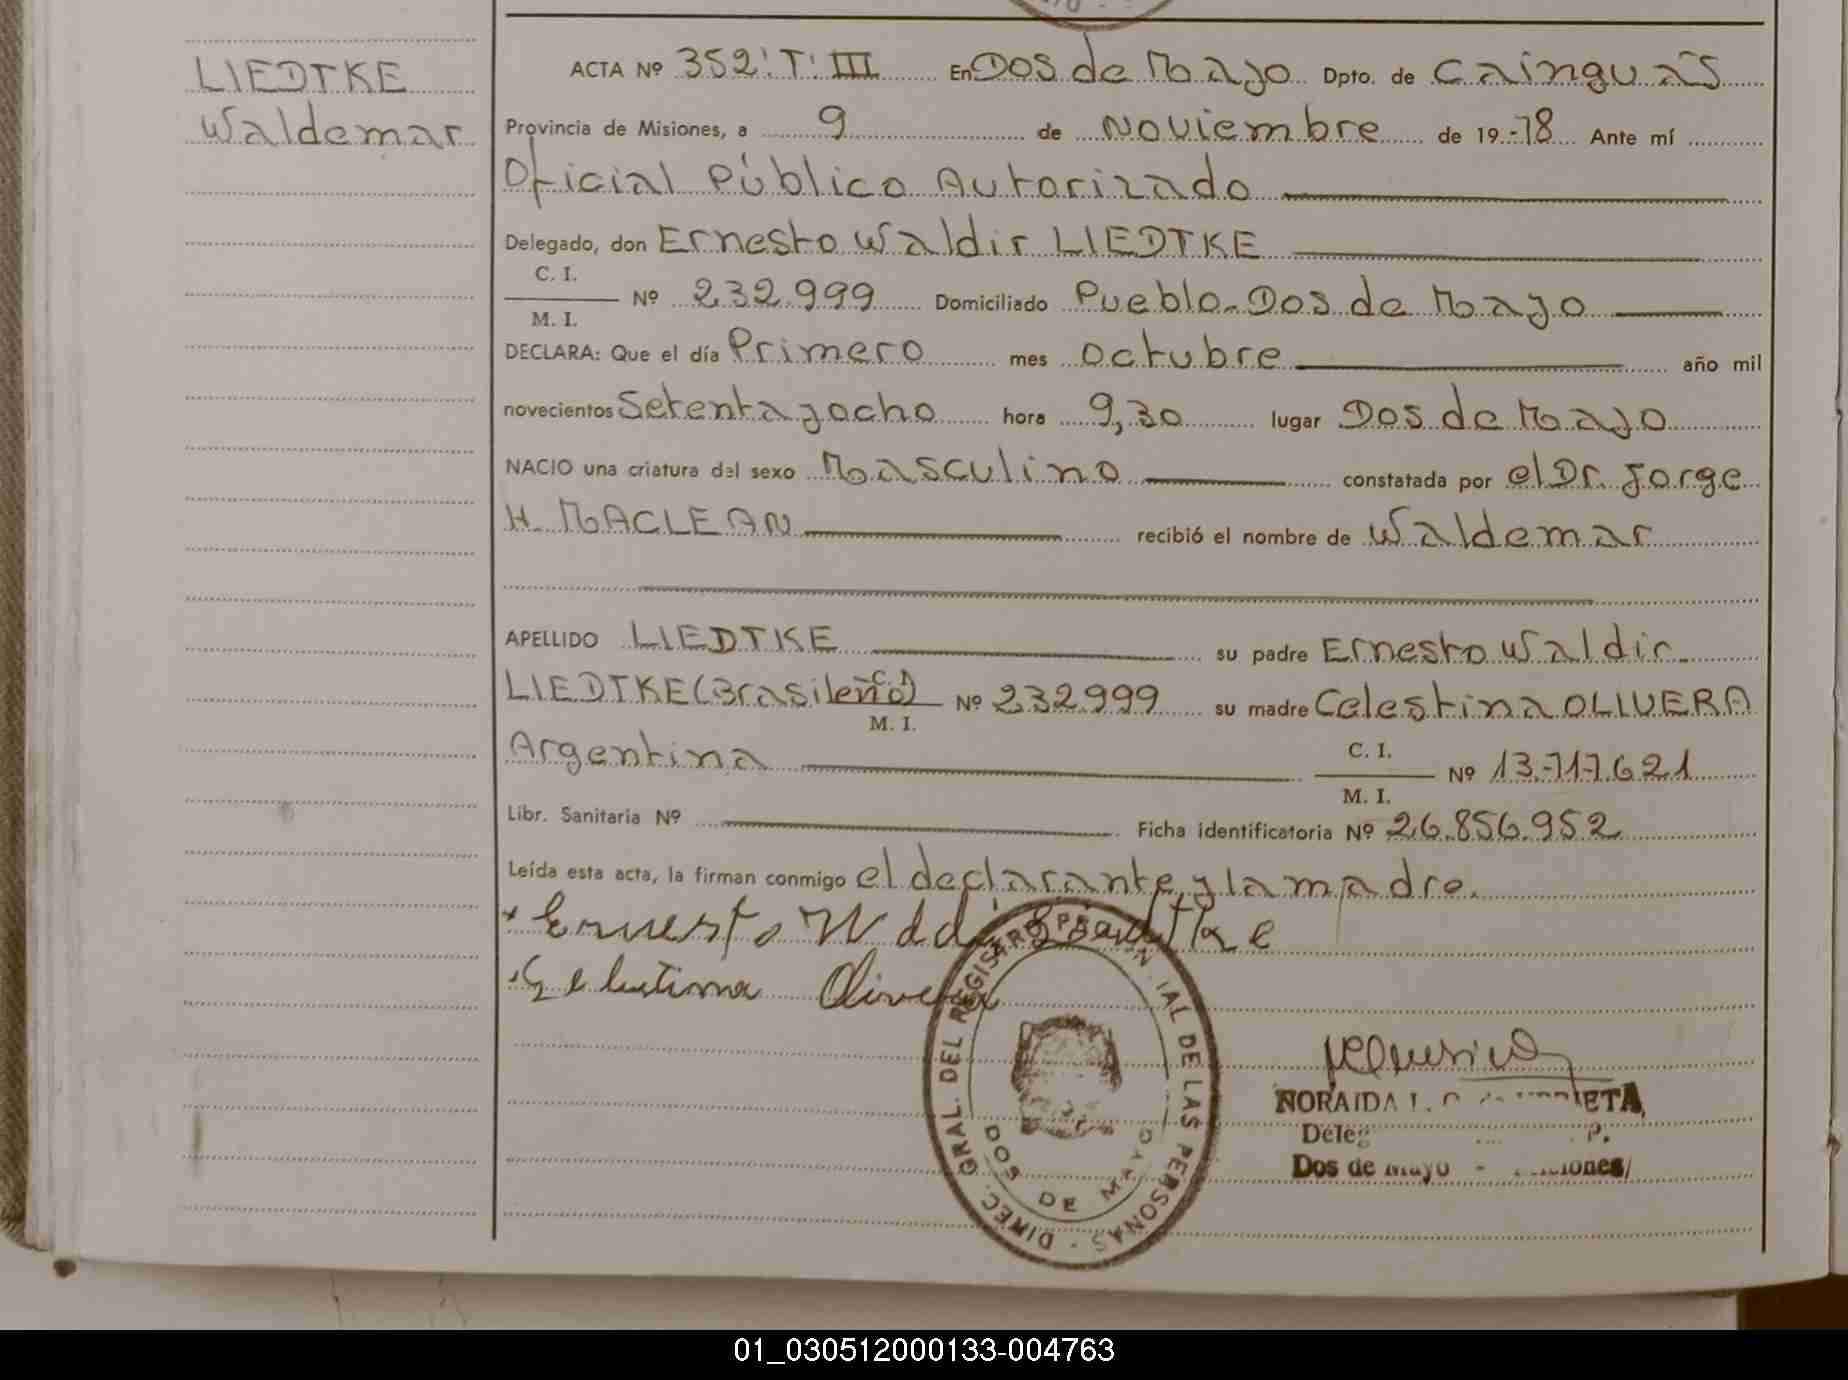 LIEDTKE
Waldemar
ACTA Nº 352' T' III En Dos de Mayo Dpto. de Cainguás
Provincia de Misiones, a 9 de Noviembre de 19-78 Ante mí
Oficial Público Autorizado
Delegado, don Ernesto Waldir LIEDTKE
C. I.
M. I.
Nº 232.999 Domiciliado Pueblo-Dos de Mayo
DECLARA: Que el día Primero mes octubre año mil
novecientos Setenta y ocho hora 9,30 lugar Dos de Mayo
NACIO una criatura del sexo Masculino constatada por el Dr. Jorge
H. MACLEAN recibió el nombre de Waldemar
APELLIDO LIEDTKE su padre Ernesto Waldir
LIEDTKE (Brasileño) C. I.
M. I.
Nº 232999 su madre Celestina OLIVERA
Argentina C. I.
M. I.
Nº 13.717.621
Libr. Sanitaria Nº Ficha identificatoria Nº 26.856.952
Leída esta acta, la firman conmigo el declarante y la madre.
Ernesto
Olivera
DIREC. GRAL. DEL REGISTRO DE LAS PERSONAS -
DOS DE MAYO
NORAIDA
Dos de Mayo -
01_030512000133-004763